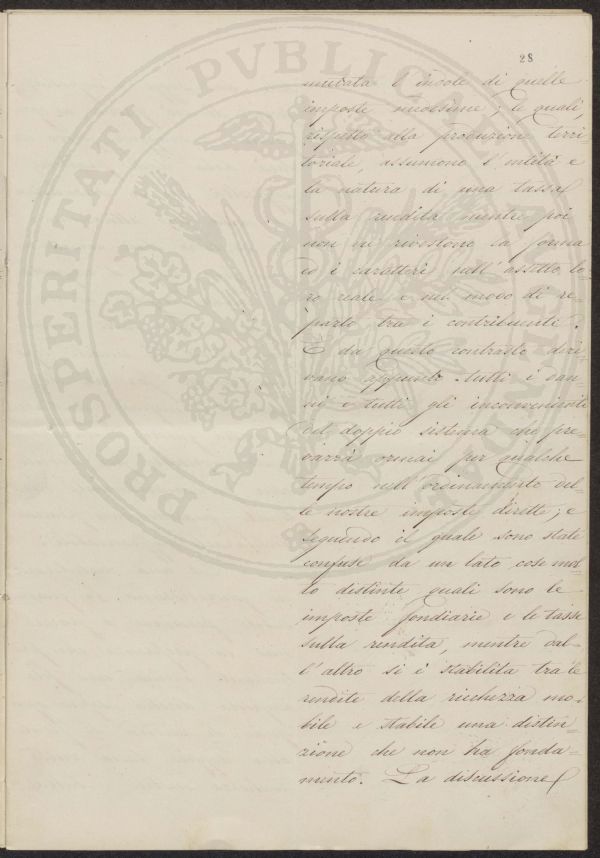 28
mutata l'indole di quelle
imposte medesime; le quali,
rispetto alla produzione terri-
toriale, assumono l'entità e
la natura di una tassa
sulla rendita mentre poi
non ne rivestono la forma
ed i caratteri nell'assetto lo-
ro reale e nel modo di re-
parto tra i contribuenti.
E da questo contrasto deri-
vano appunto tutti i dan-
ni e tutti gli inconvenienti
del doppio sistema che pre-
varrà ormai per qualche
tempo nell'ordinamento del-
le nostre imposte dirette; e
seguendo il quale sono state
confuse da un lato cose mol-
to distinte quali sono le
imposte fondiarie e le tasse
sulla rendita, mentre dal-
l'altro si è stabilita tra le
rendite della ricchezza mo-
bile e stabile una distin-
zione che non ha fonda-
mento. La discussione
PROSPERITATI PVBLICAE